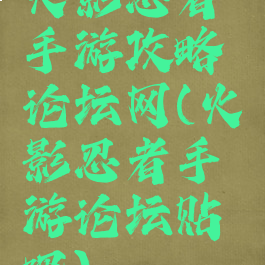 火影忍者
手游攻略
论坛网(火
影忍者手
游论坛贴
吧)